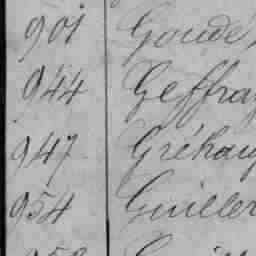 901 Goude
944 Geffray
947 Gréhan
954 Guiller
958